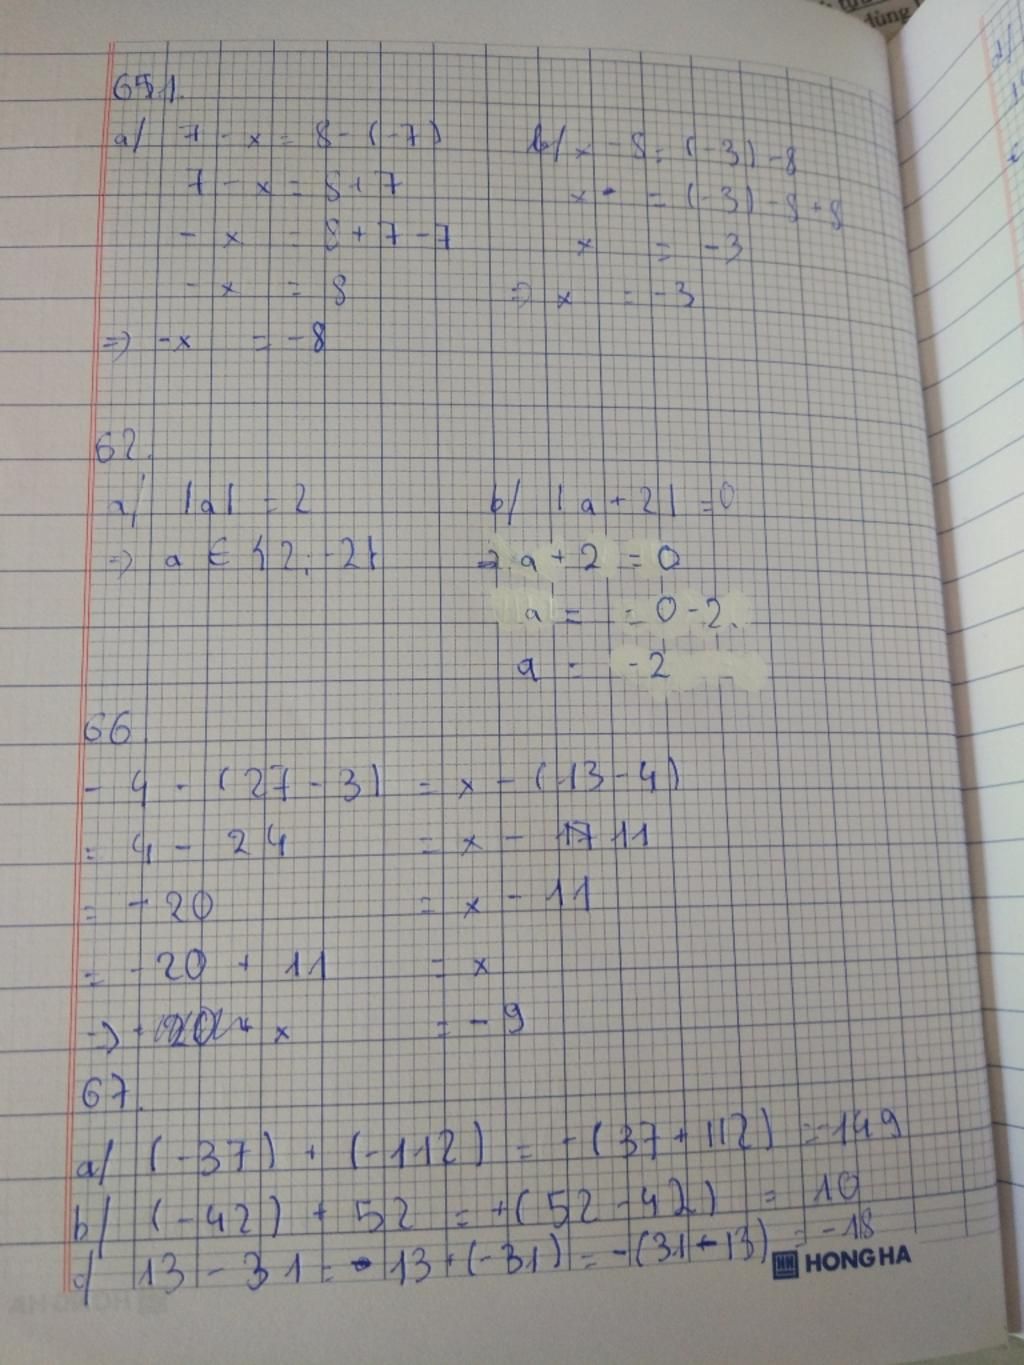 61.
a/ 7 - x = 8 - (-7)
7 - x = 8 + 7
- x = 8 + 7 - 7
- x = 8
=> -x = -8
b/ x - 8 = (-3) - 8
x = (-3) - 8 + 8
x = -3
=> x = -3
62.
a/ |a| = 2
=> a ∈ {2; -2}
b/ |a + 2| = 0
=> a + 2 = 0
a = = 0 - 2.
a = -2
66
- 4 - (27 - 3) = x - (13 - 4)
= 4 - 24 = x - 11
= -20 = x - 11
= -20 + 11 = x
=> x = -9
67.
a/ (-37) + (-112) = -(37 + 112) = -149
b/ (-42) + 52 = +(52 - 42) = 10
c/ 13 - 31 = 13 + (-31) = -(31 - 13) = -18
HONG HA